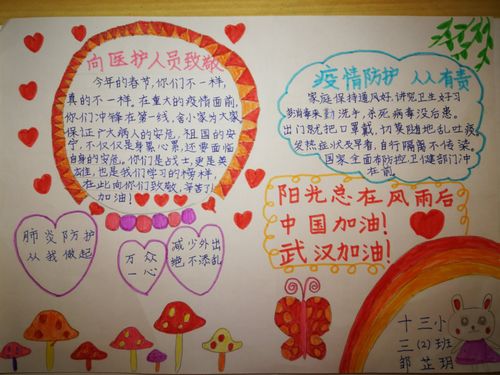 向医护人员致敬
今年的春节,你们不一样,
真的不一样。在重大的疫情面前,
你们冲锋在第一线,舍小家为大家
保证广大病人的安危。祖国的安
宁,不仅仅是身累心累,还要面临
自身的安危。你们是战士,更是英
雄,也是我们学习的榜样,
在此向你们致敬,辛苦了!
加油!
疫情防护 人人有责
家庭保持通风好,讲究卫生好习
多消毒来勤洗手,杀死病毒没后患。
出门就把口罩戴,切莫随地乱吐痰。
发热症状及早看,自行隔离不传染。
国家全面布防控卫健部门冲
在前。
阳光总在风雨后
中国加油!
武汉加油!
肺炎防护
从我做起
万众
一心
减少外出
绝不添乱
十三小
三(2)班
邹芷玥